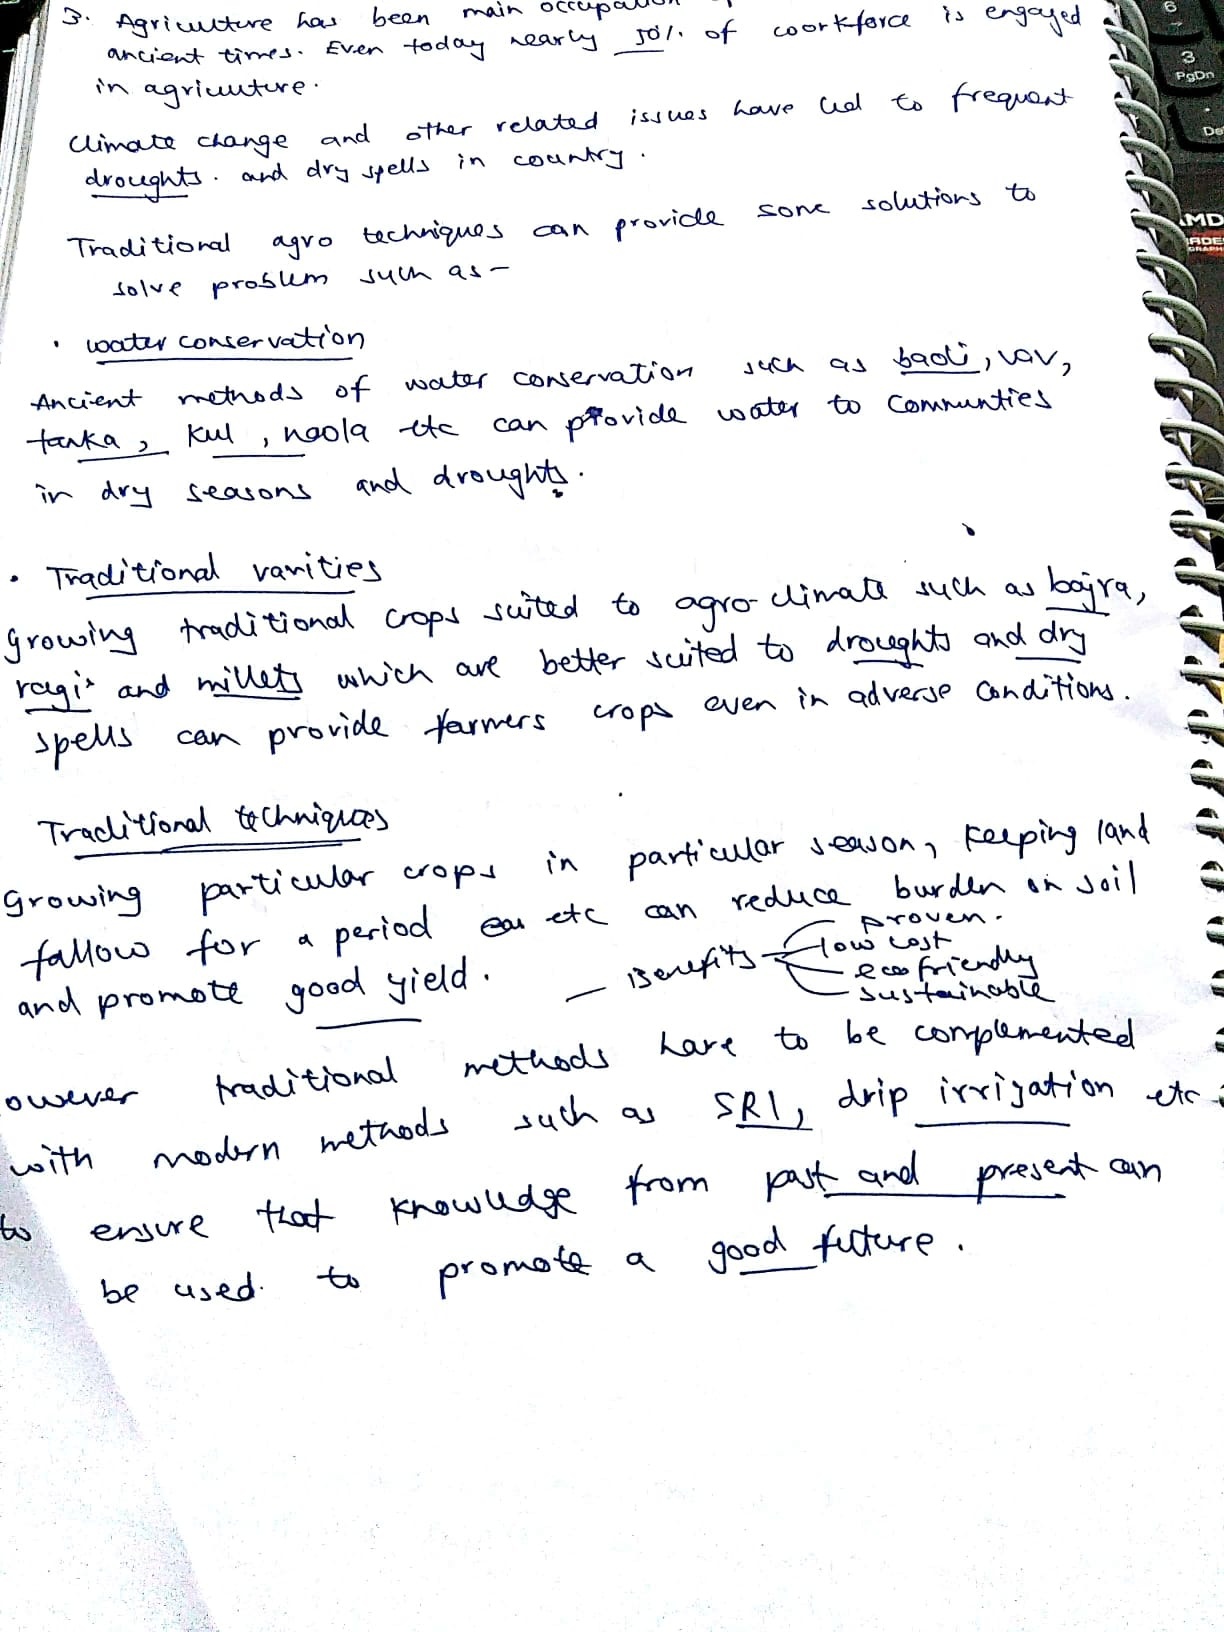 3. Agriculture has been main
ancient times. Even today nearly 50% of coorkforce is engaged
in agriculture.
Climate change and other related issues have led to frequent
droughts. and dry spells in country.
Traditional agro techniques can provide some solutions to
solve problem such as -
· water conservation
Ancient methods of water conservation such as baoli, vav,
tanka, Kul, naola etc can provide water to communties
in dry seasons and droughts.
· Traditional varities
Growing traditional crops suited to agro-climate such as bajra,
ragi and millets which are better suited to droughts and dry
spells can provide farmers crops even in adverse conditions.
Traditional techniques
Growing particular crops in particular season, keeping land
fallow for a period etc can reduce burden on soil
and promote good yield. — Benefits
proven.
low cost
eco friendly
sustainable
owever traditional methods have to be complemented
with modern methods such as SRI, drip irrigation etc
to ensure that knowledge from past and present can
be used. to promote a good future.
6
3
PgDn
De
AMD
GRAPH